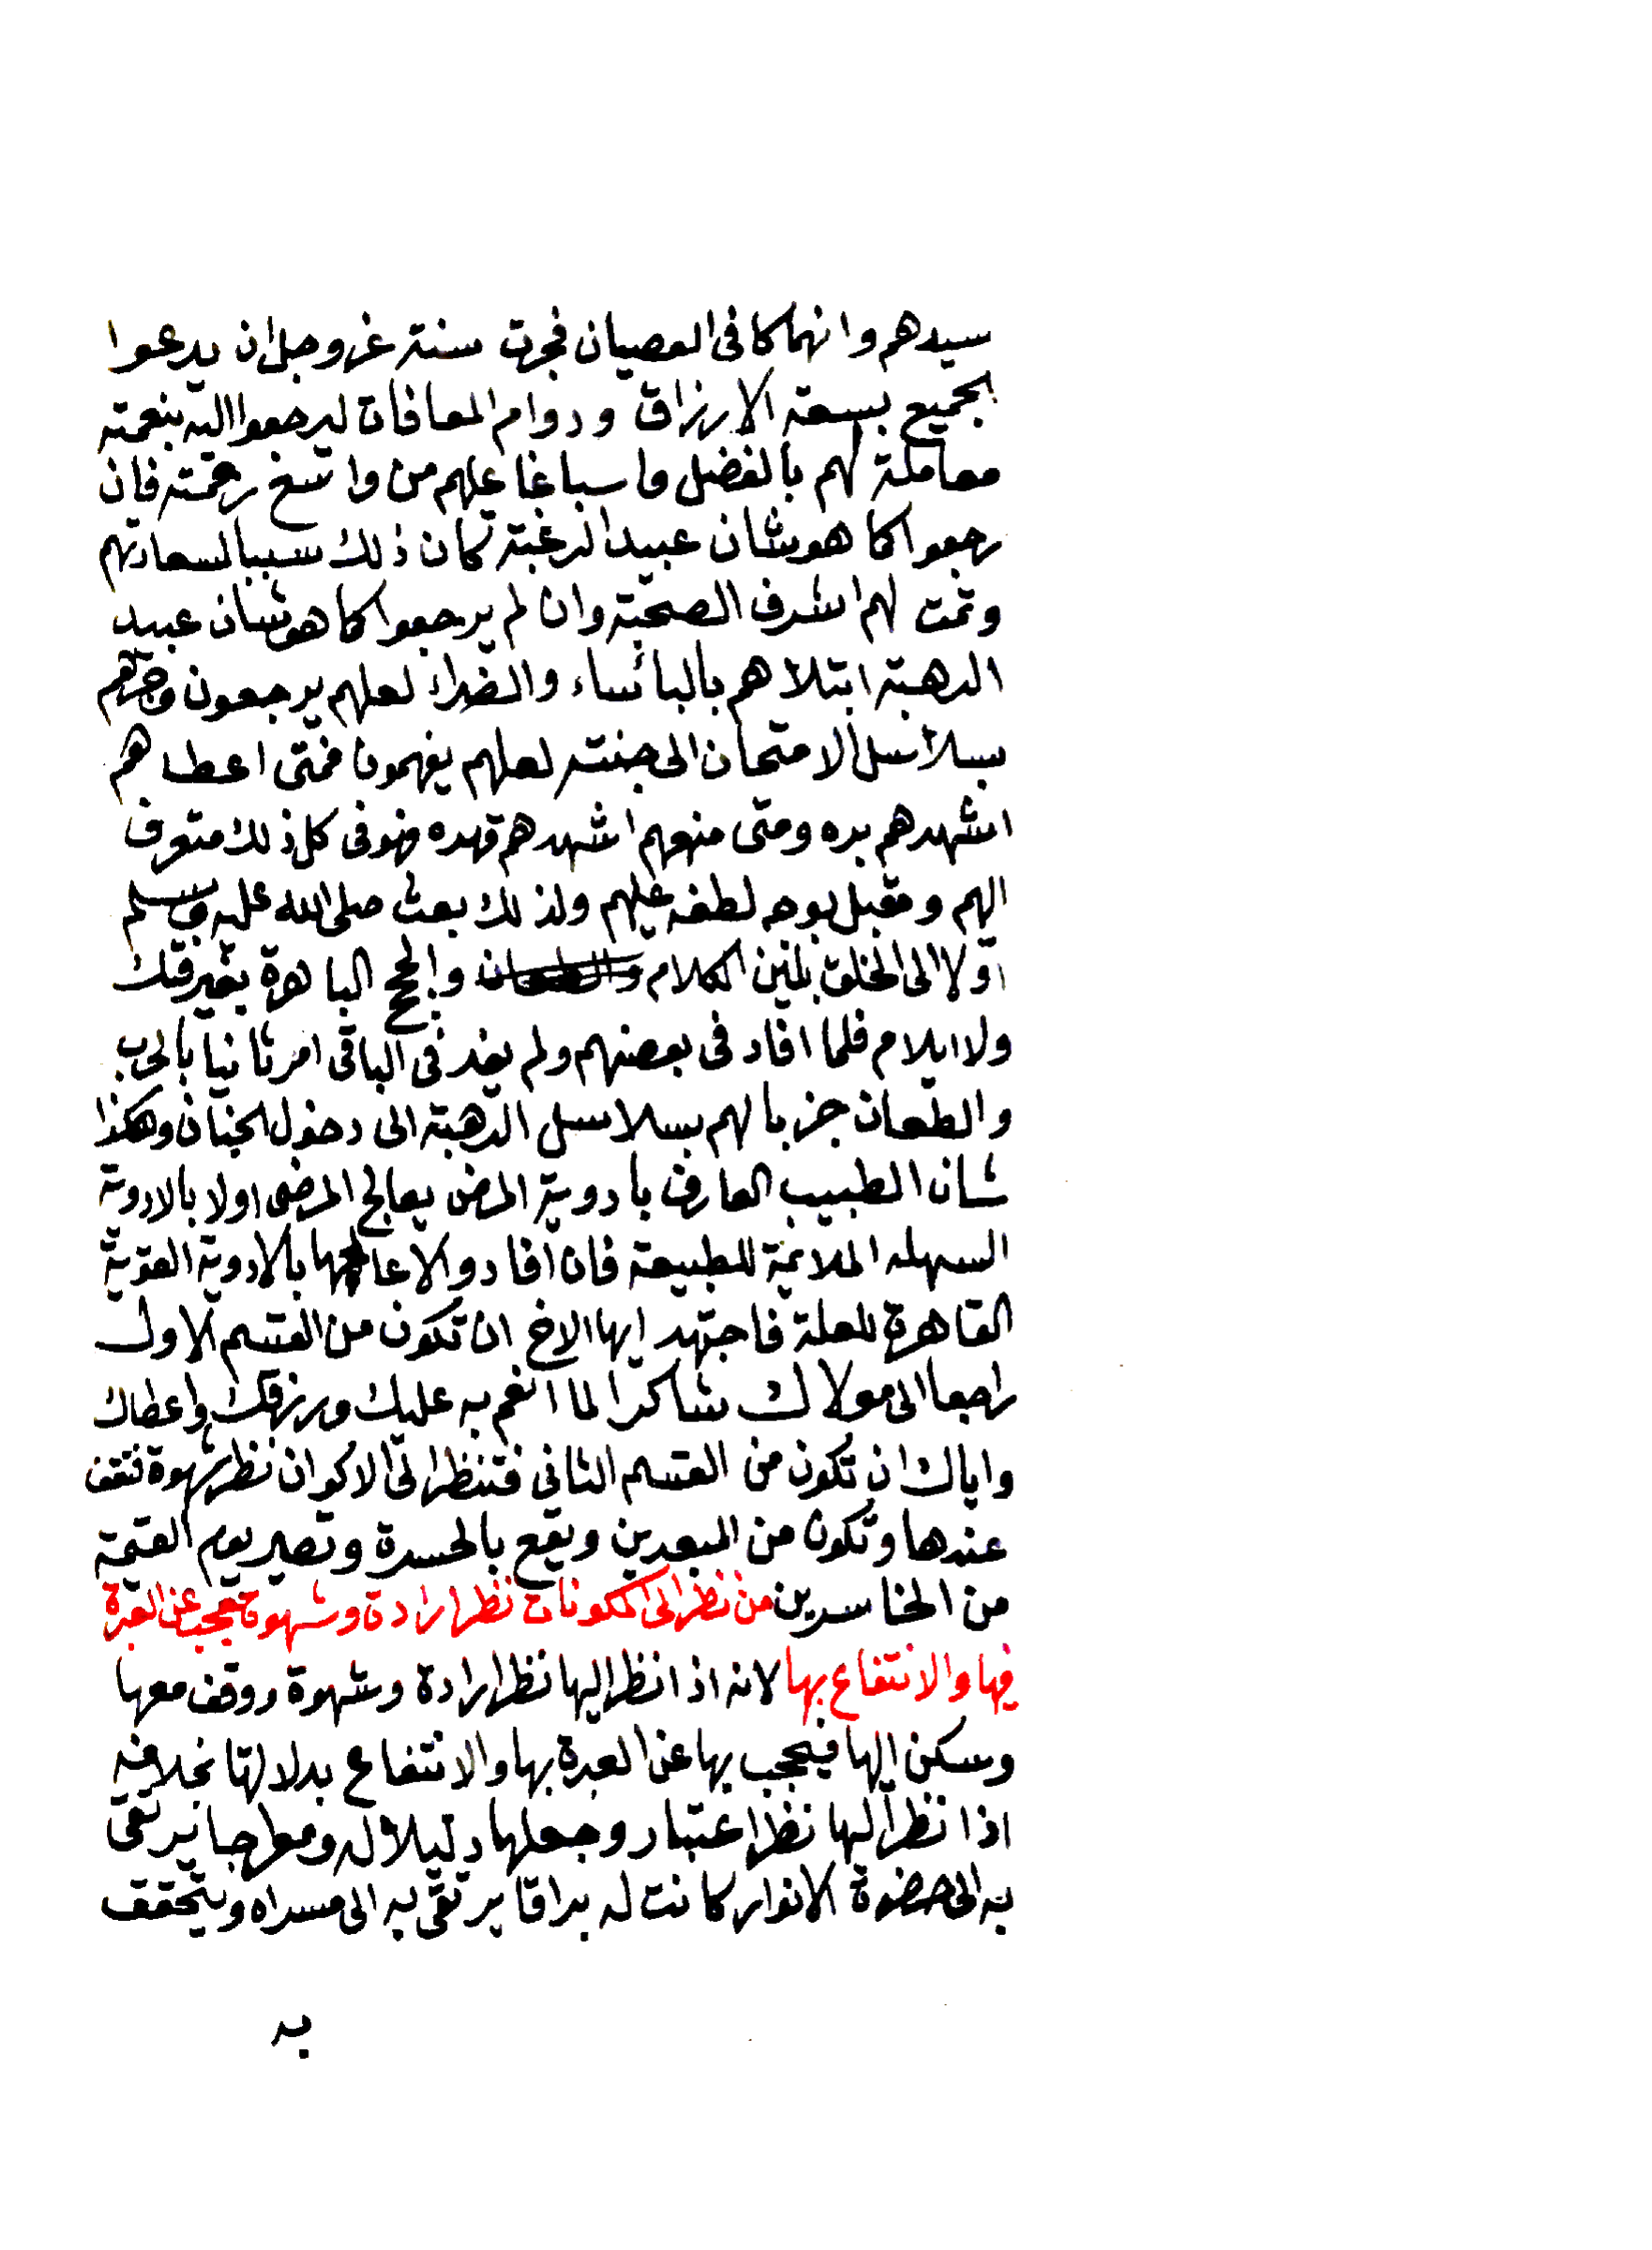 سيدهم وانهماكا فى العصيان فجرت سنته عز وجل ان يدعوا
الجميع بسعة الارزاق ودوام المعافات ليرجعوا اليه بنعمته
معاملة لهم بالفضل واسباغا عليهم من واسع رحمته فان
رجعوا كما هو شان عبيد الرغبة كان ذلك سببا لسعادتهم
وتمت لهم اشرف الصحبة وان لم يرجعوا كما هو شان عبيد
الرهبة ابتلاهم بالبائساء والضراء لعلهم يرجعون وجرهم
بسلاسل الامتحان الى جنته لعلهم يفهمون فمتى اعطاهم
اشهدهم بره ومتى منعهم اشهدهم قهره فهو فى كل ذلك متعرف
اليهم ومقبل بوجه لطفه عليهم ولذلك بعث صلى الله عليه وسلم
اولا الى الخلق بلين الكلام والطعان والحجج الباهرة بغير قتل
ولا ايلام فلما افاد فى بعضهم ولم يفد فى الباقى امر ثانيا بالحرب
والطعان جزبا لهم بسلاسل الرهبة الى دخول الجنان وهكذا
شان الطبيب العارف بادوية المرض يعالج المرضى اولا بالادوية
السهله الملائمة للطبيعة فان افاد والا عالجها بالادوية القوية
القاهرة للعلة فاجتهد ايها الاخ ان تكون من القسم الاول
راجعا الى مولاك شاكرا لما انعم به عليك ورزقك واعطاك
واياك ان تكون من القسم الثانى فتنظر الى الاكوان نظر شهوة فتقف
عندها وتكون من المبعدين ويقع بالحسرة وتصير يوم القيمة
من الخاسرين من نظر الى المكونات نظر ارادة وشهوة حجب عن العبرة
فيها والانتفاع بها لانه اذا نظر اليها نظر ارادة وشهوة ووقف معها
وسكن اليها فيحجب بها عن العبرة بها والانتفاع بدلالتها بخلافه
اذا نظر اليها نظر اعتبار وجعلها دليلا له ومعراجا يرتقى
به الى حضرة الانوار كانت له براقا يرتقى به الى مسراه ويتحقق
به